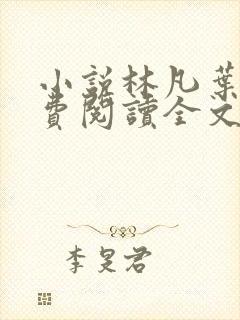 小説林凡葉
費閱讀全文
李旻君